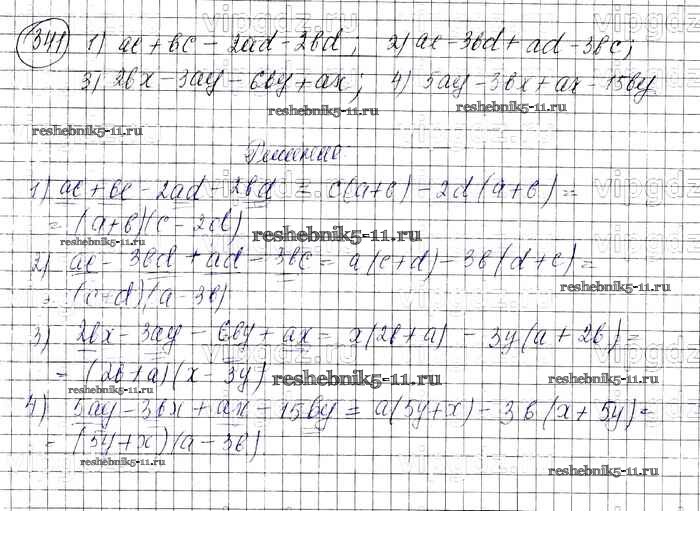 341 1) ac + bc - 2ad - 2bd; 2) ac - 3bd + ad - 3bc;
3) 2bx - 3ay - 6by + ax; 4) 5ay - 3bx + ax - 15by
reshebnik5-11.ru reshebnik5-11.ru
reshebnik5-11.ru
Решение
1) ac + bc - 2ad - 2bd = c(a+b) - 2d(a+b) =
= (a+b)(c - 2d)
reshebnik5-11.ru reshebnik5-11.ru
2) ac - 3bd + ad - 3bc = a(c+d) - 3b(d+c) =
= (c+d)(a - 3b)
reshebnik5-11.ru
3) 2bx - 3ay - 6by + ax = x(2b+a) - 3y(a + 2b) =
= (2b+a)(x - 3y)
reshebnik5-11.ru reshebnik5-11.ru
4) 5ay - 3bx + ax - 15by = a(5y+x) - 3b(x + 5y) =
= (5y+x)(a - 3b)
reshebnik5-11.ru reshebnik5-11.ru